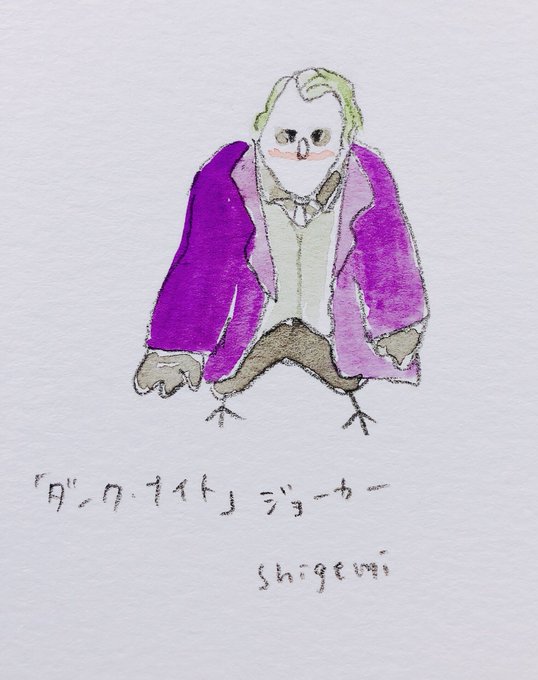 「ダーク・ナイト」 ジョーカー
shigemi